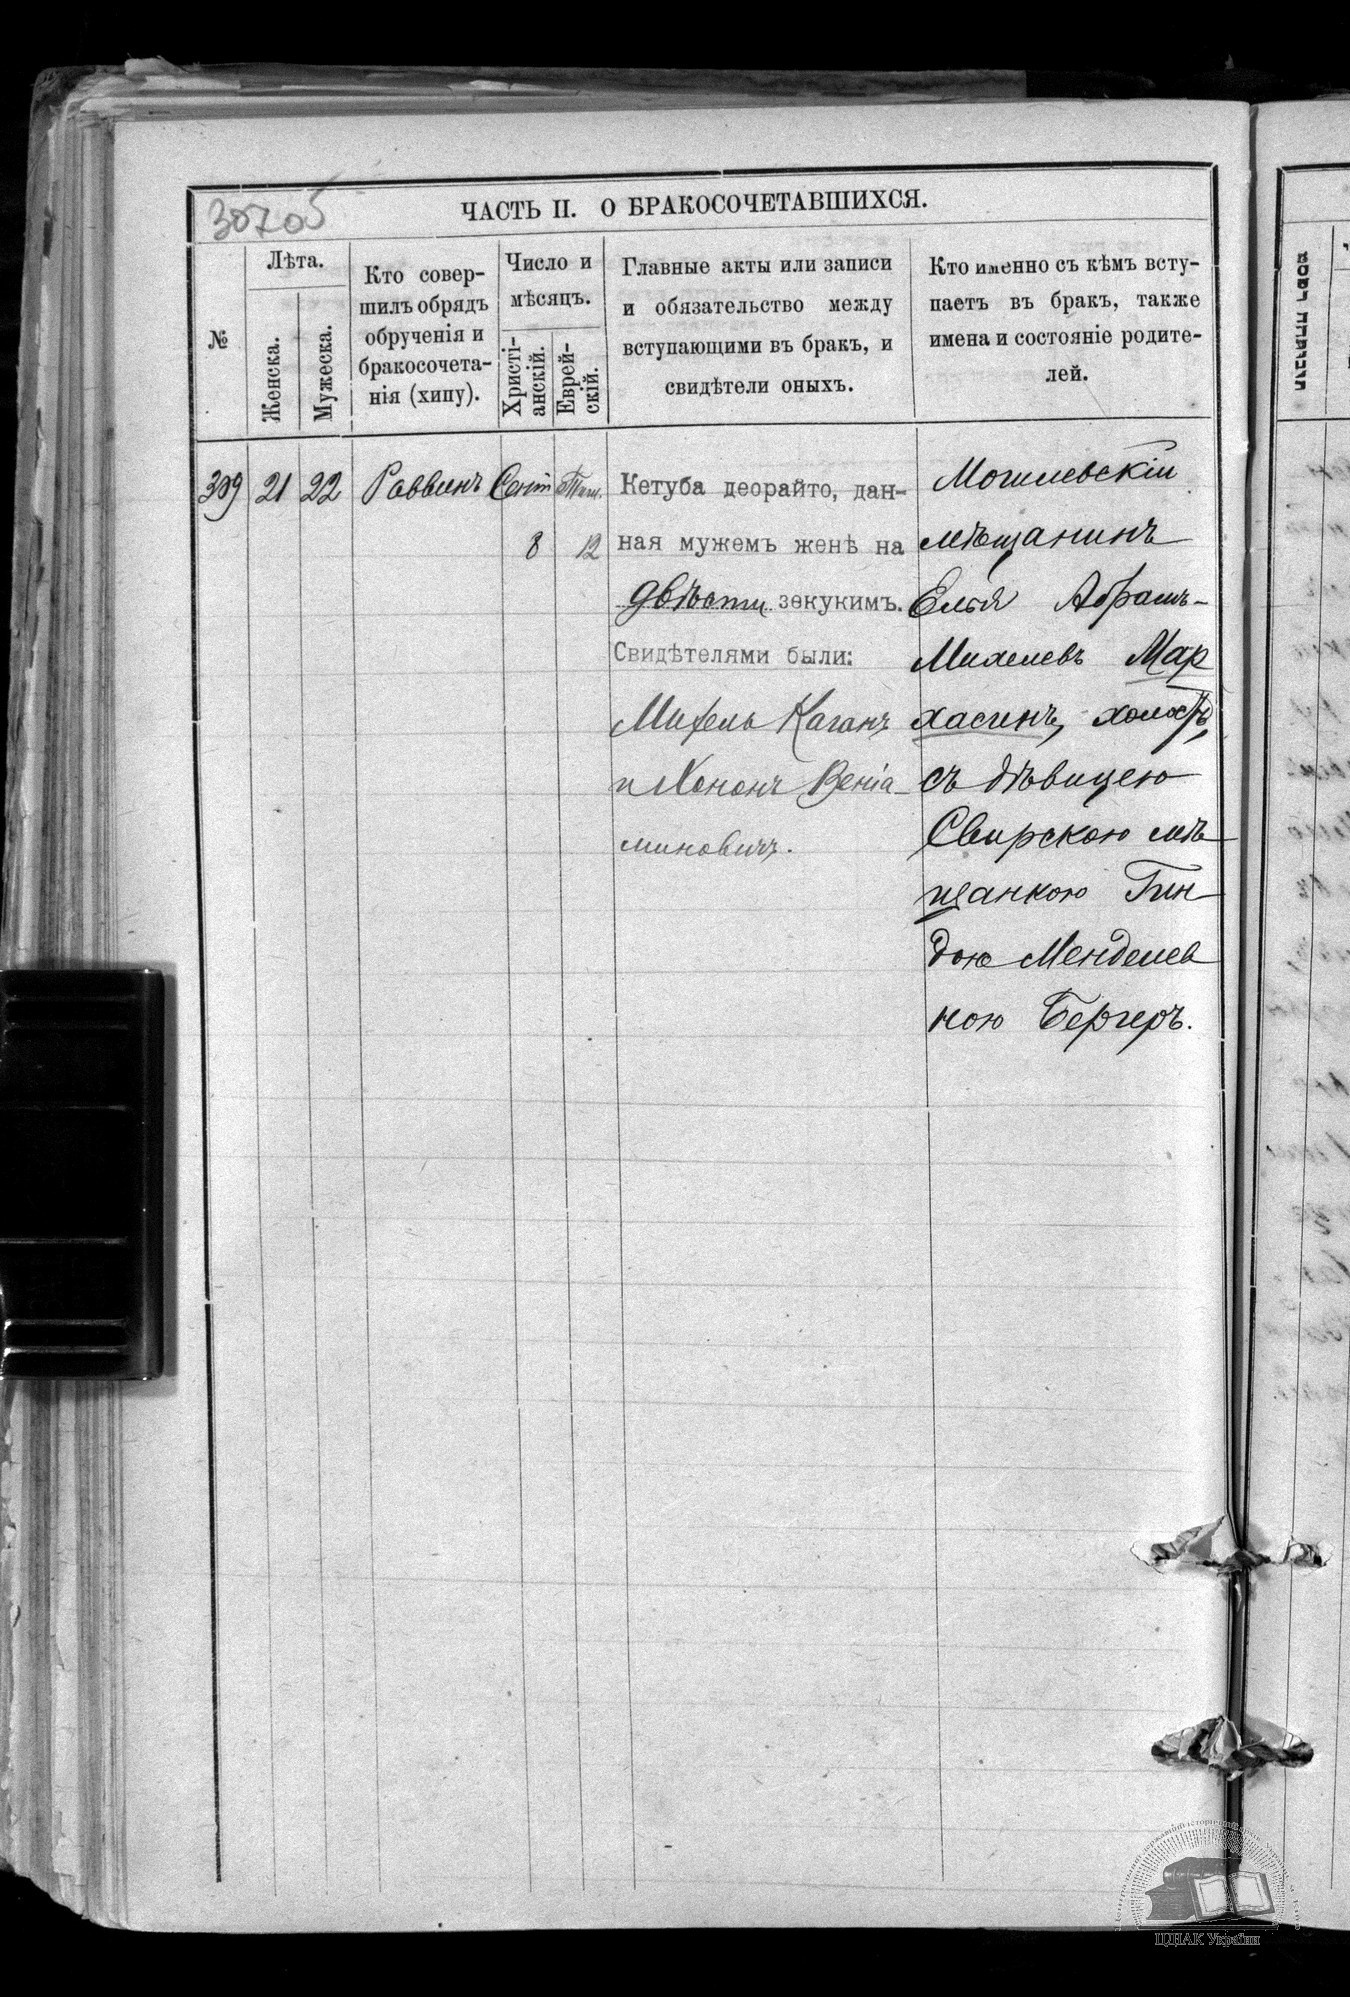 30705
ЧАСТЬ II. О БРАКОСОЧЕТАВШИХСЯ.
№
Лѣта.
Женска.
Мужеска.
Кто совер-
шилъ обрядъ
обрученія и
бракосочета-
нія (хипу).
Число и
мѣсяцъ.
Христі-
анскій.
Еврей-
скій.
Главные акты или записи
и обязательство между
вступающими въ бракъ, и
свидѣтели оныхъ.
Кто именно съ кѣмъ всту-
паетъ въ бракъ, также
имена и состояніе родите-
лей.
309 21 22 Раввинъ Сент Тиш.
8 12
Кетуба деорайто, дан-
ная мужемъ женѣ на
двѣсти зекукимъ.
Свидѣтелями были:
Михель Каганъ
и Хононъ Веніа-
миновичъ.
Могилевскій
мѣщанинъ
Елья Абрамъ-
Михелевъ Мар
хасинъ, холостъ,
съ дѣвицею
Свирскою мѣ
щанкою Гин
дою Менделев
ною Бергеръ.
ЦДІАК України